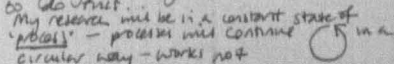 so do this...
My research will be in a constant state of
"process" – processes will continue in a
circular way – works not